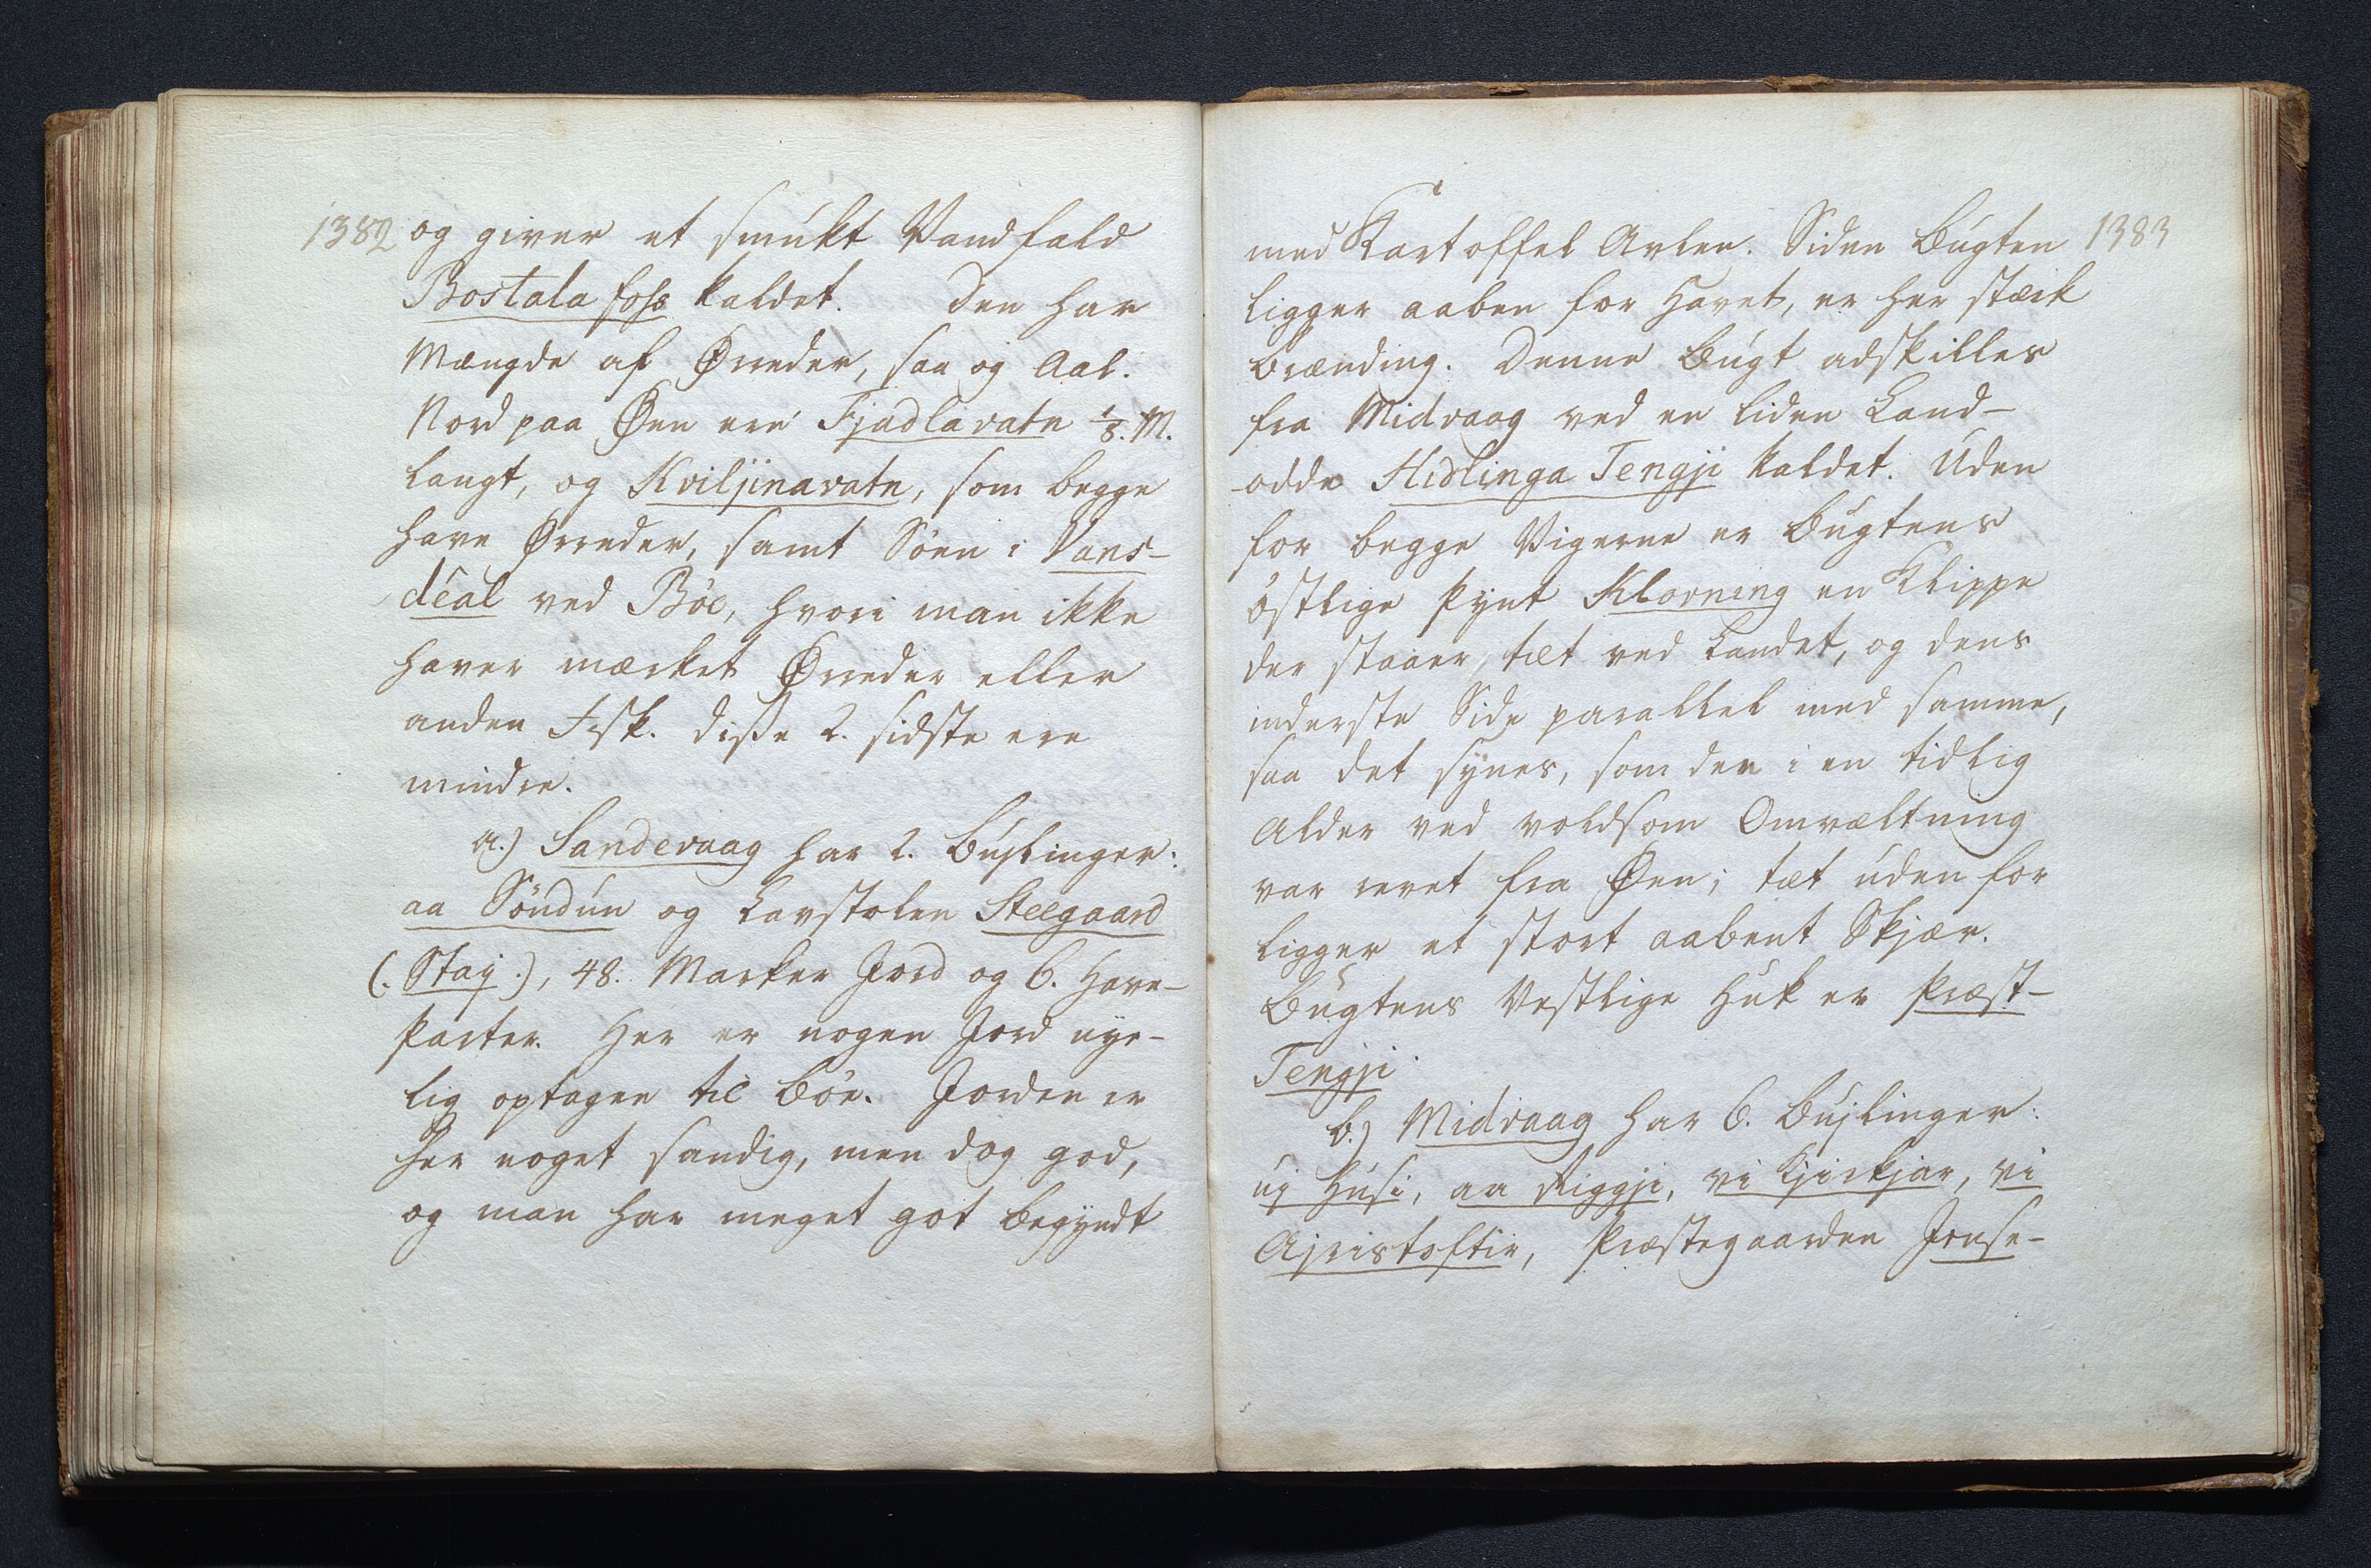 1382 og giver et smukt Vandfald
Bostala foss kaldet. Den har
Mængde af Ørreder, saa og Aal.
Nord paa Øen ere Fjadlavatn 1/8. M.
langt, og Kviljinavatn, som begge
have Ørreder, samt Söen i Vans-
dêal ved Böe, hvori man ikke
haver mærket Ørreder eller
anden Fisk. Disse 2. sidste ere
mindre.
a.) Sandevaag har 2. Bujlinger:
aa Söndun og Lavstolen Steegaard
(. Staj .), 48. Marker Jord og 6. Have-
Parter. Her er nogen Jord nye-
lig optagen til Böe. Jorden er
her noget sandig, men dog god,
og man har meget got begyndt
med Kartoffel Avlen. Siden Bugten 1383
ligger aaben for Havet, er her stærk
Brænding. Denne Bugt adskilles
fra Midvaag ved en liden Land-
odde Hidlinga Tengji kaldet. Uden
for begge Vigerne er Bugtens
östlige Pynt Klovning en Klippe
der staaer tæt ved Landet, og dens
inderste Side parallel med samme,
saa det synes, som den i en tidlig
Alder ved voldsom Omvæltning
var revet fra Øen; tæt uden for
ligger et stort aabent Skjær.
Bugtens Vestlige Huk er Præst-
Tengji.
b.) Midvaag har 6. Bujlinger:
uj Husi, aa Riggji, vi Kjirkjar, vi
Ajristoftir, Præstegaarden Jense-